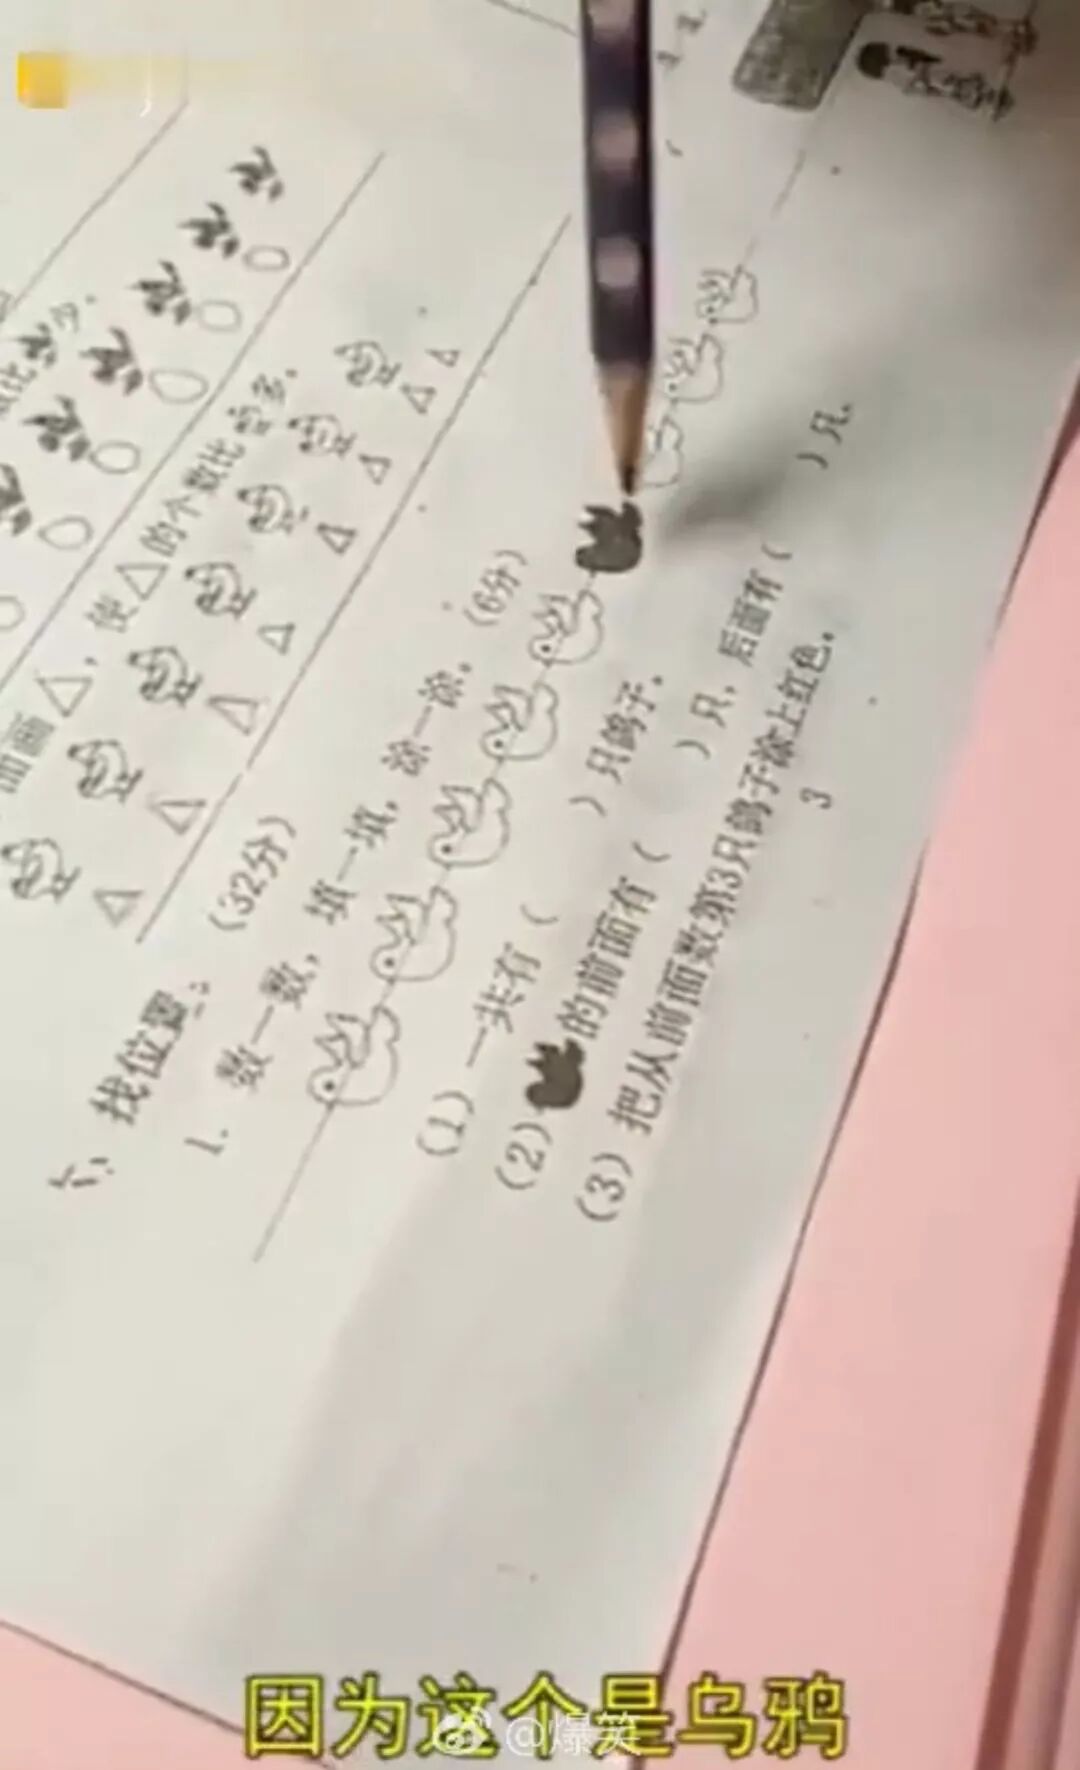 加画△，使△的个数比多。
六、找位置。(32分)
1. 数一数，填一填，涂一涂。(6分)
(1) 一共有( )只鸽子。
(2) 的前面有( )只，后面有( )只。
(3) 把从前面数第3只鸽子涂上红色。
3
因为这个是乌鸦
@爆笑